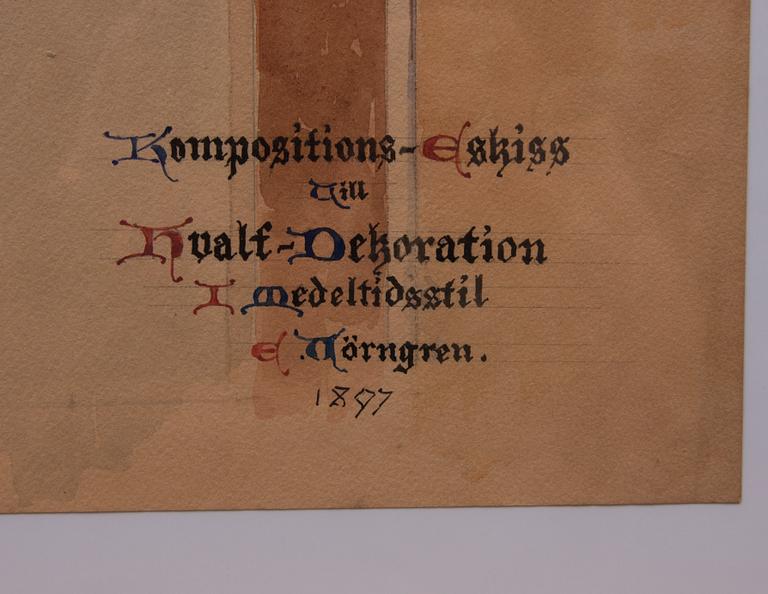 Kompositions-Eskiss
Till
Hvalf-Dekoration
I Medeltidsstil
E. Törngren.
1897